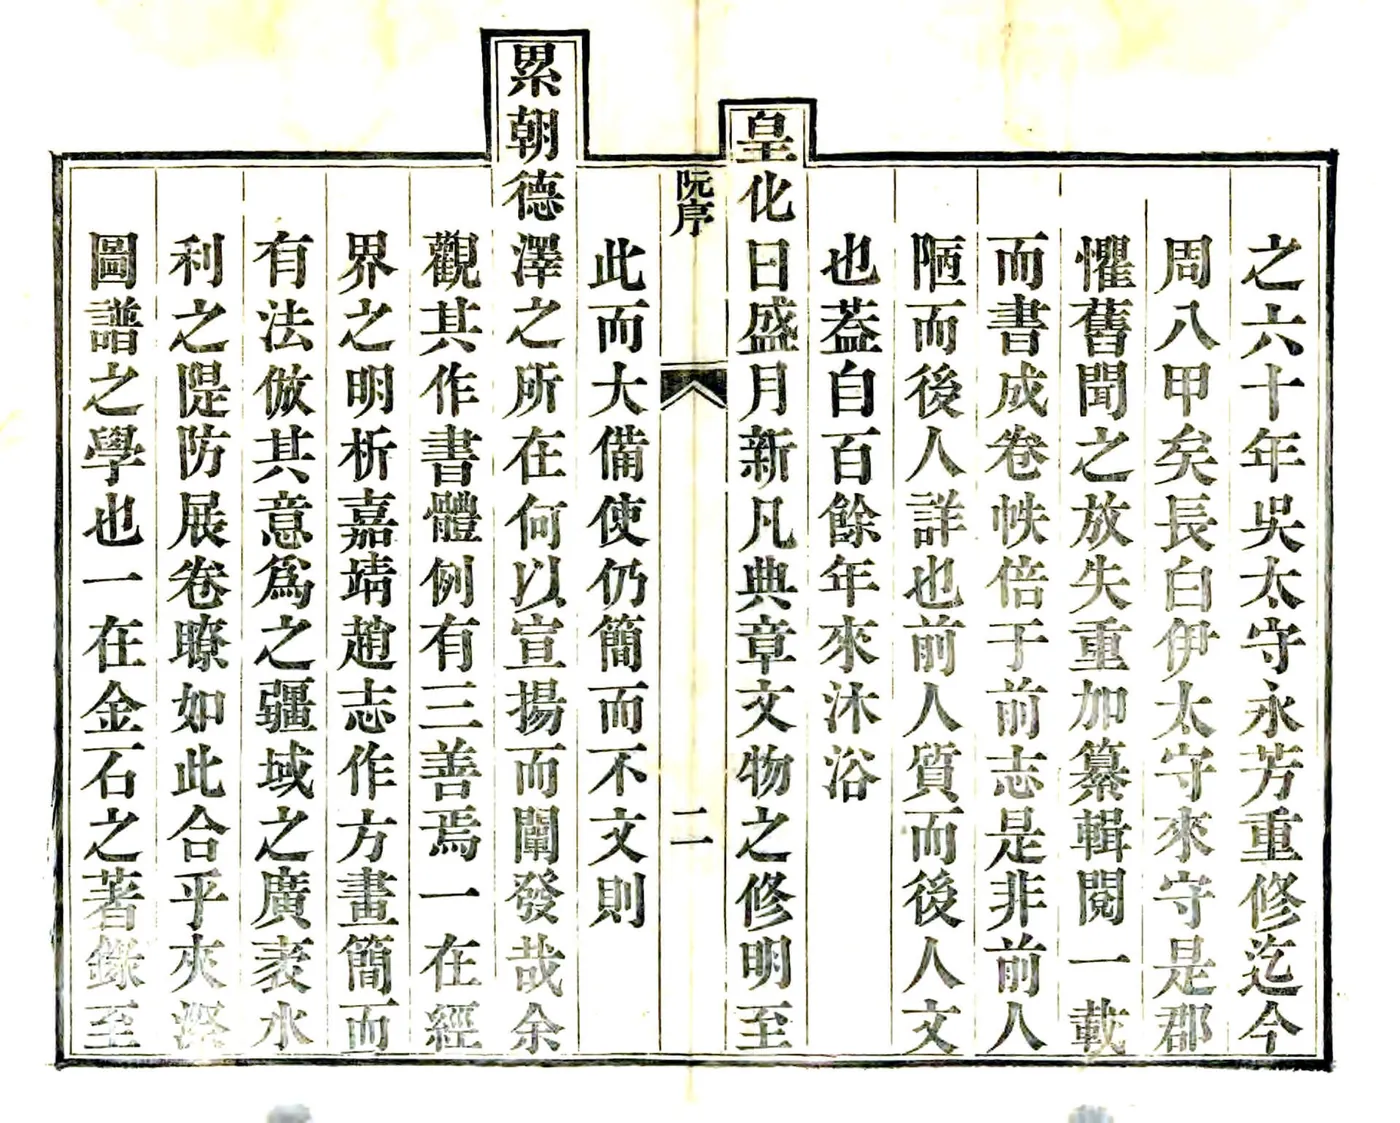 之六十年吳太守永芳重修迄今
周八甲矣長白伊太守來守是郡
懼舊聞之放失重加纂輯閱一載
而書成卷帙倍于前志是非前人
陋而後人詳也前人質而後人文
也葢自百餘年來沐浴
皇化日盛月新凡典章文物之修明至
阮序
二
此而大備使仍簡而不文則
累朝德澤之所在何以宣揚而闡發哉余
觀其作書體例有三善焉一在經
界之明析嘉靖趙志作方畫簡而
有法倣其意爲之疆域之廣袤水
利之隄防展卷暸如此合乎夾漈
圖譜之學也一在金石之著錄至